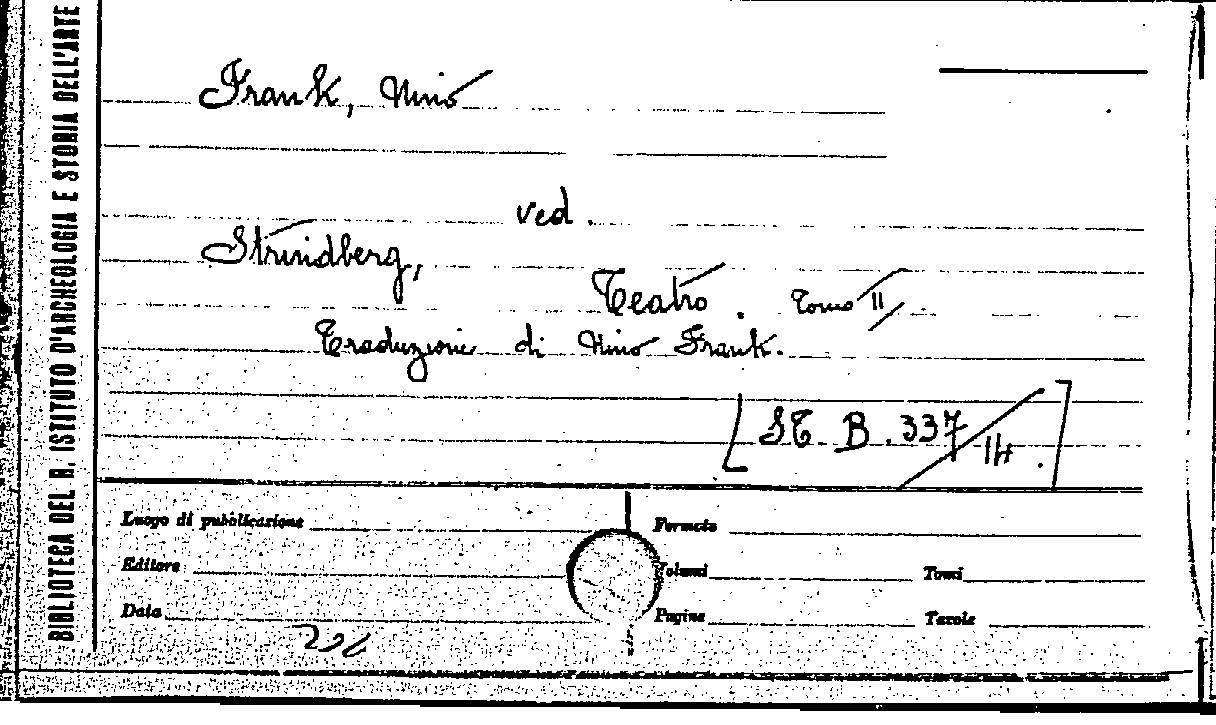 BIBLIOTECA DEL R. ISTITUTO D'ARCHEOLOGIA E STORIA DELL'ARTE
Frank, Nino
ved.
Strindberg,
Teatro. Tomo II.
Traduzione di Nino Frank.
[ST. B. 337/
Luogo di pubblicazione
Formato
Editore
Volumi
Tomi
Data
Pagine
Tavole